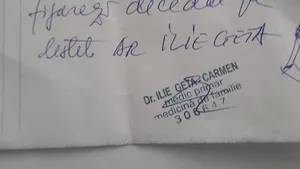 decedat
AR ILIE GETA
Dr. ILIE GETA-CARMEN
medic primar
medicină de familie
306647